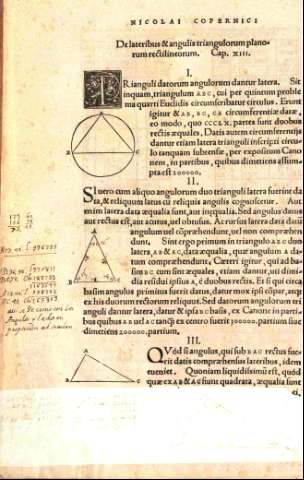 NICOLAI COPERNICI
De lateribus & angulis triangulorum plano-
rum rectilineorum. Cap. XIII.
I.
TRianguli datorum angulorum dantur latera. Sit
inquam, triangulum ABC, cui per quintum proble
ma quarti Euclidis circumscribatur circulus. Erunt
igitur & AB, BC, CA circumferentiæ datæ,
eo modo, quo CCCLX. partes sunt duobus
rectis æquales. Datis autem circumferentijs
dantur etiam latera trianguli inscripti circu-
lo tanquam subtensæ, per expositum Cano
nem, in partibus, quibus dimetiens assum-
pta est 200000.
II.
SI uero cum aliquo angulorum duo trianguli latera fuerint da
ta, & reliquum latus cū reliquis angulis cognoscetur. Aut
enim latera data æqualia sunt, aut inæqualia. Sed angulus datus
aut rectus est, aut acutus, uel obtusus. Ac rursus latera data datū
angulum uel cōprehendunt, uel non comprehen
dunt. Sint ergo primum in triangulo ABC duo
latera, AB & AC, data æqualia, quæ angulum A da-
tum comprehendunt. Cæteri igitur, qui ad ba-
sim BC cum sint æquales, etiam dantur, uti dimi-
dia residui ipsius A, è duobus rectis. Et si qui circa
basim angulus primitus fuerit datus, datur mox ipsi cōpar, atqz
ex his duorum rectorum reliquus. Sed datorum angulorum tri
anguli dantur latera, datur & ipsa BC basis, ex Canone in parti-
bus quibus AB uel AC tanqz ex centro fuerit 100000. partium siue
dimetiens 200000. partium.
III.
QVòd si angulus, qui sub BAC rectus fue-
rit datis comprehensus lateribus, idem
eueniet. Quoniam liquidissimū est, quòd
quæ ex AB & AC fiunt quadrata, æqualia sunt
ei,
A
B
C
A
B
C
A
B
C